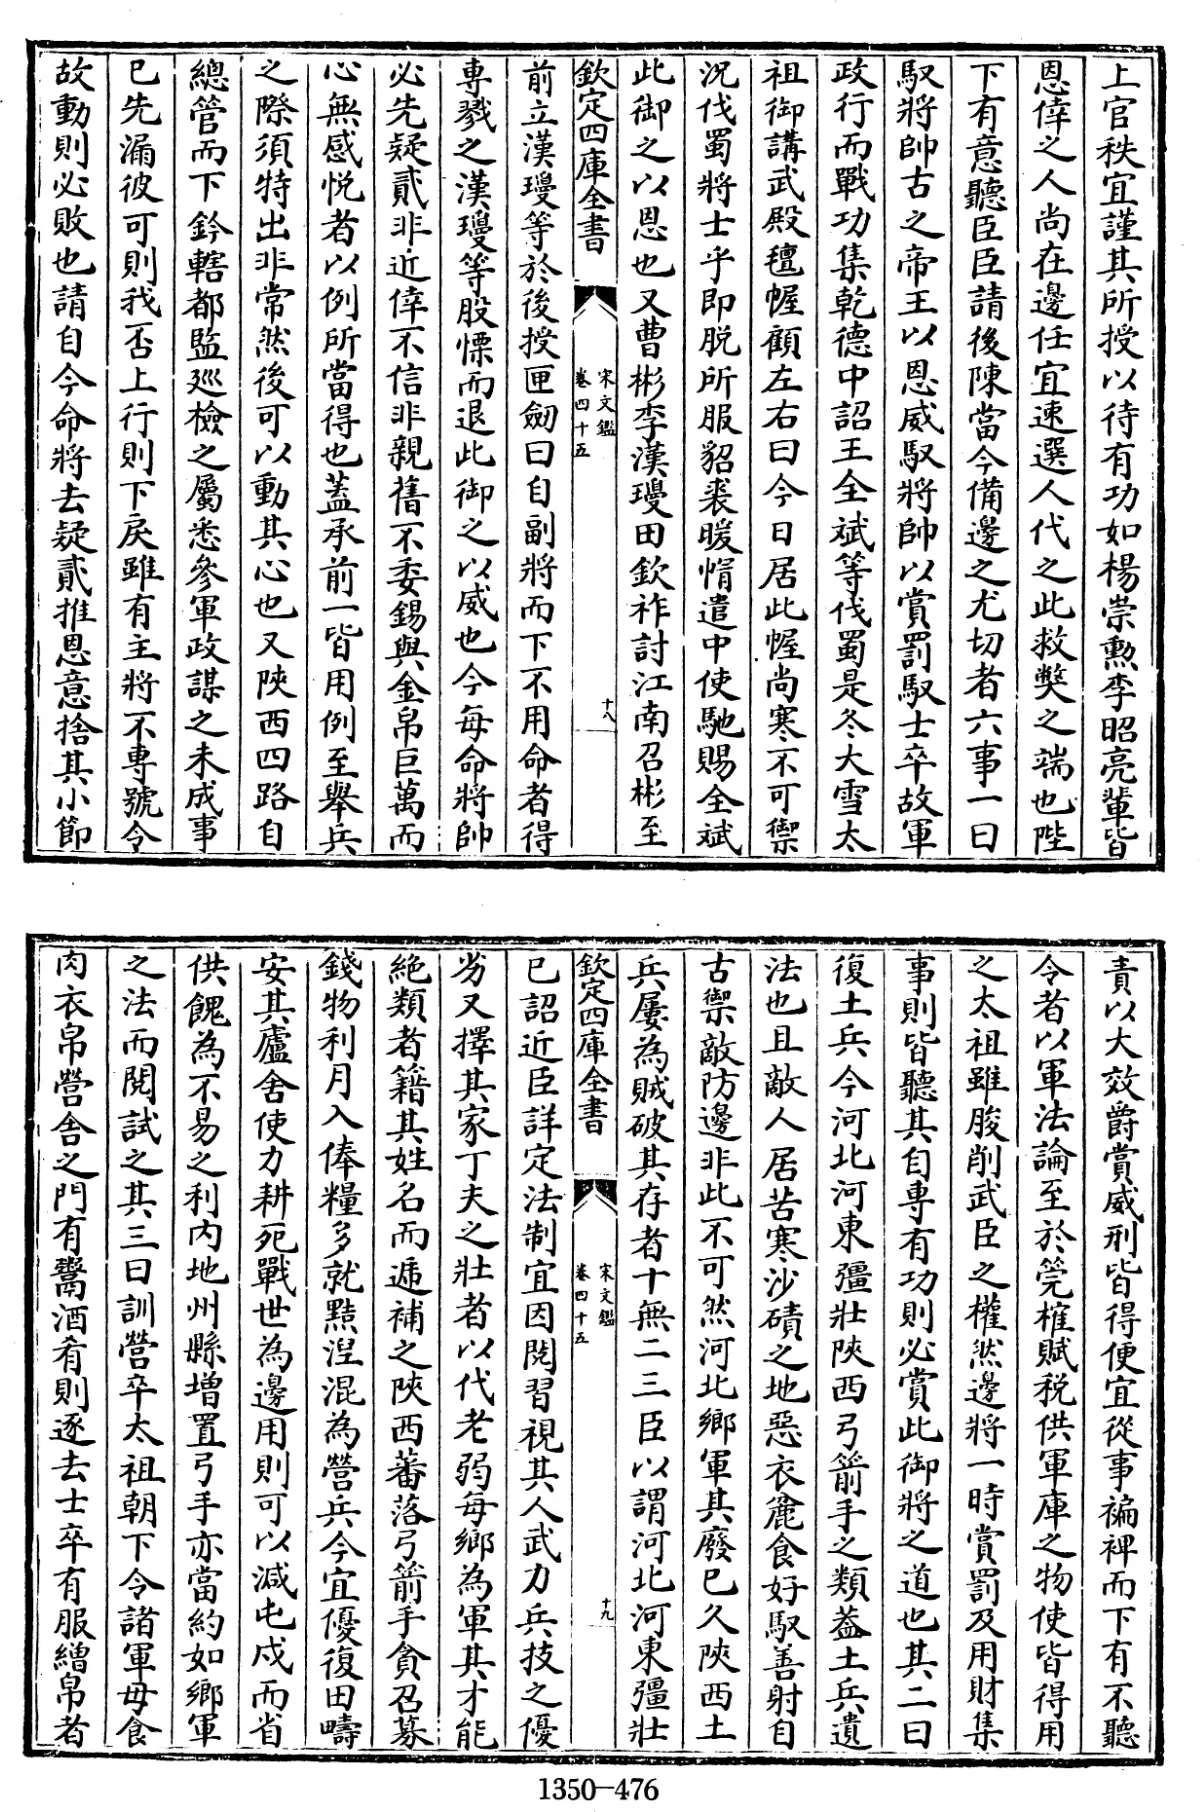 上官秩宜謹其所授以待有功如楊崇勲李昭亮輩皆
恩倖之人尚在邊任宜速選人代之此救獘之端也陛
下有意聽臣臣請後陳當今備邊之尤切者六事一曰
馭將帥古之帝王以恩威馭將帥以賞罰馭士卒故軍
政行而戰功集乾德中詔王全斌等伐蜀是冬大雪太
祖御講武殿氊幄顧左右曰今日居此幄尚寒不可禦
況伐蜀將士乎即脱所服貂裘暖㡌遣中使馳賜全斌
此御之以恩也又曹彬李漢瓊田欽祚討江南召彬至
欽定四庫全書
宋文鑑
卷四十五
十八
前立漢瓊等於後授匣劒曰自副將而下不用命者得
專戮之漢瓊等股慄而退此御之以威也今每命將帥
必先疑貳非近倖不信非親舊不委錫與金帛巨萬而
心無感悦者以例所當得也蓋承前一皆用例至舉兵
之際須特出非常然後可以動其心也又陜西四路自
總管而下鈐轄都監廵檢之屬悉參軍政謀之未成事
已先漏彼可則我否上行則下戾雖有主將不專號令
故動則必敗也請自今命將去疑貳推恩意捨其小節
責以大效爵賞威刑皆得便宜從事褊裨而下有不聽
令者以軍法論至於筦榷賦税供軍庫之物使皆得用
之太祖雖朘削武臣之權然邊將一時賞罰及用財集
事則皆聽其自專有功則必賞此御將之道也其二曰
復土兵今河北河東彊壯陜西弓箭手之類葢土兵遺
法也且敵人居苦寒沙磧之地惡衣麄食好馭善射自
古禦敵防邊非此不可然河北鄉軍其廢已久陜西土
兵屢為賊破其存者十無二三臣以謂河北河東彊壯
欽定四庫全書
宋文鑑
卷四十五
十九
已詔近臣詳定法制宜因閲習視其人武力兵技之優
劣又擇其家丁夫之壯者以代老弱每鄉為軍其才能
絶類者籍其姓名而遞補之陜西蕃落弓箭手貪召募
錢物利月入俸糧多就黥湼混為營兵今宜優復田疇
安其廬舍使力耕死戰世為邊用則可以減屯戍而省
供餽為不易之利内地州縣增置弓手亦當約如鄉軍
之法而閲試之其三曰訓營卒太祖朝下令諸軍毋食
肉衣帛營舍之門有鬻酒肴則逐去士卒有服繒帛者
1350—476